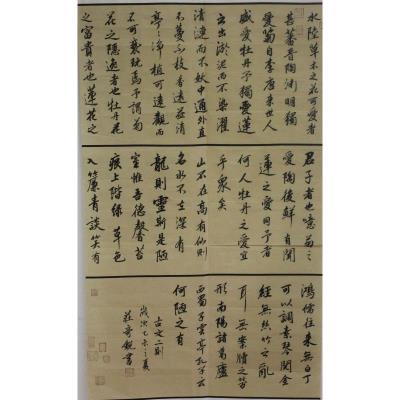 水陸草木之花可愛者
甚蕃晉陶淵明獨
愛菊自李唐來世人
盛愛牡丹予獨愛蓮
之出淤泥而不染濯
清漣而不妖中通外直
不蔓不枝香遠益清
亭亭淨植可遠觀而
不可褻玩焉予謂菊
花之隱逸者也牡丹花
之富貴者也蓮花之
君子者也噫菊之
愛陶後鮮有聞
蓮之愛同予者
何人牡丹之愛宜
乎衆矣
山不在高有仙則
名水不在深有
龍則靈斯是陋
室惟吾德馨苔
痕上階綠草色
入簾青談笑有
鴻儒往來無白丁
可以調素琴閱金
經無絲竹之亂
耳無案牘之勞
形南陽諸葛廬
西蜀子雲亭孔子云
何陋之有
古文二則
歲次乙未之夏
書